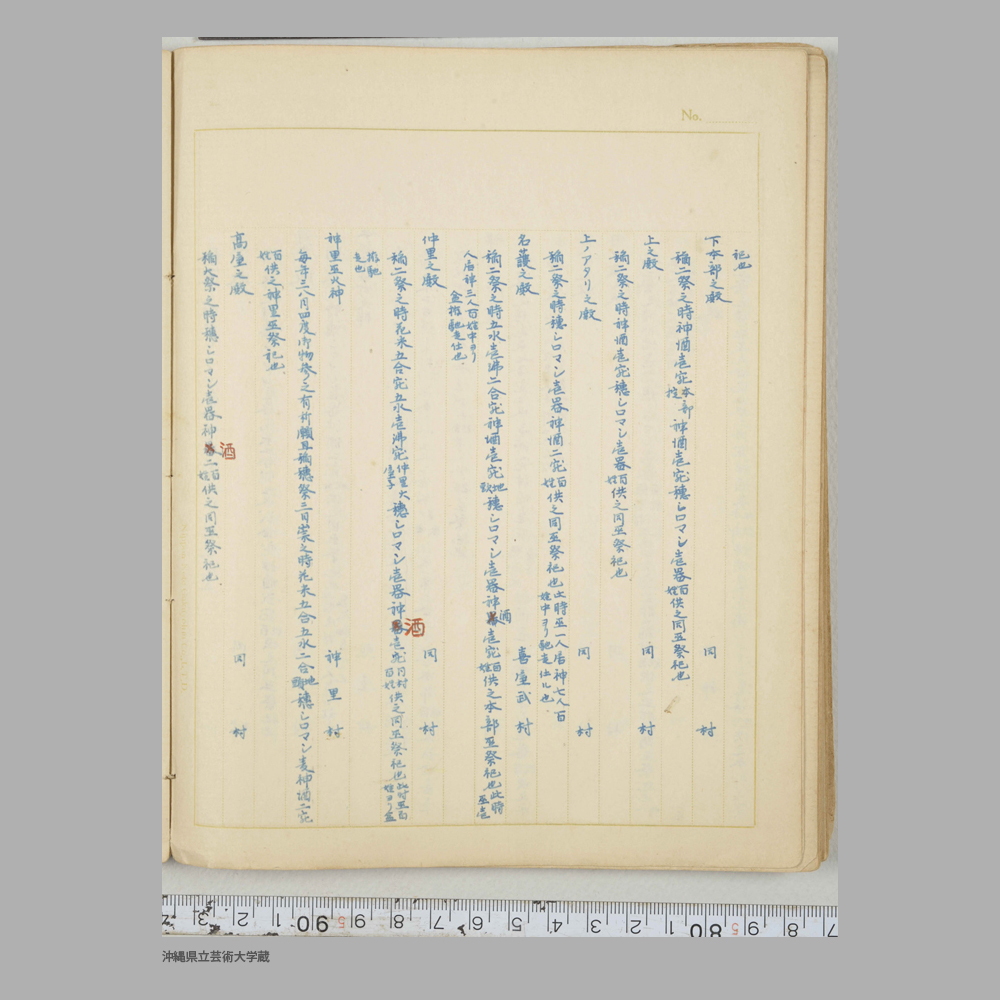 No.
祀也
下本部之殿 同村
稲二祭之時神酒壱宛本部掟神酒壱宛穂シロマシ壱器百姓供之同巫祭祀也
上之殿 同村
稲二祭之時神酒壱宛穂シロマシ壱器百姓供之同巫祭祀也
上ノアタリ之殿 同村
稲二祭之時穂シロマシ壱器神酒二宛百姓供之同巫祭祀也此時巫一人居神七人百姓中ヨリ馳走仕ル也
名護之殿 喜屋武村
稲二祭之時五水壱沸二合宛神酒壱宛地穂シロマシ壱器神酒壱宛百姓供之本部巫祭祀也此時巫壱
人居神三人百姓中ヨリ
馳走仕也
仲里之殿 同村
稲二祭之時花米五合宛五水壱沸宛仲里大屋子穂シロマシ壱器神酒壱宛同村百姓供之同巫祭祀也此時巫百姓ヨリ
馳走也
神里巫火神 神里村
毎年三八月四度御物参之有祈願且稲穂祭三日崇之時花米五合五水二合地穂シロマシ壱神酒二宛
百姓供之神里巫祭祀也
高屋之殿 同村
稲大祭之時穂シロマシ壱器神酒二百姓供之同巫祭祀也
2 1 90 5 8 7 6 5 4 3 2 1 80 5 8 7
沖縄県立芸術大学蔵